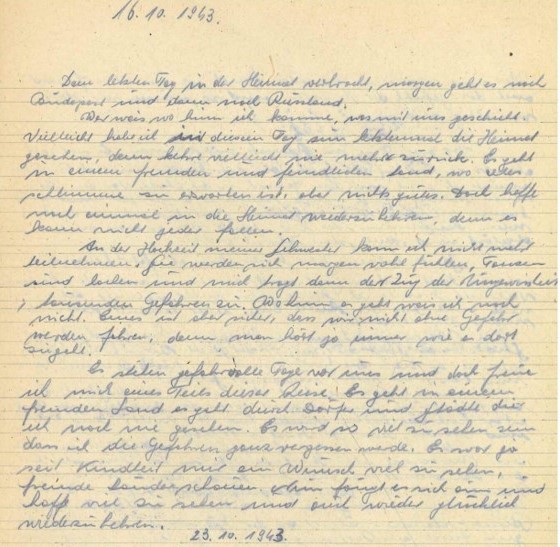 16.10.1943.
Den letzten Tag in der Heimat verbracht, morgen geht es nach
Budapest und dann nach Russland.
Wer weis wo hin ich komme, was mit uns geschieht.
Vielleicht habe ich mit diesen Tag zum letztenmal die Heimat
gesehen, dann kehre vielleicht nie mehr zurück. Es geht
in einem fremden und feindlichen Land, wo alles
schlimme zu erwarten ist, aber nichts gutes. Doch hoffe
noch einmal in die Heimat wiederzukehren, denn es
kann nicht jeder fallen.
An der Hochzeit meiner Schwester kann ich nicht mehr
teilnehmen. Sie werden sich morgen wohl fühlen, Tanzen
und lachen und mich tragt dann der Zug der
tausenden Gefahren zu. Wohin es geht weis ich noch
nicht. Eines ist aber sicher, das wir nicht ohne Gefahr
werden fahren, denn man hört ja immer wie es dort
zugeht.
Es stehen gefahrvolle Tage vor uns und doch freue
ich mich eines Teils dieser Reise. Es geht in einem
fremden Land es geht durch Dörfer und Städte die
ich noch nie gesehen. Es wird so viel zu sehen sein
dass ich die Gefahren ganz vergessen werde. Es war ja
seit Kindheit nur ein Wunsch viel zu sehen,
fremde Länder schauen. Nun fängt es sich an und
hoffe viel zu sehen und auch wieder glücklich
wiederzukehren.
23.10.1943.